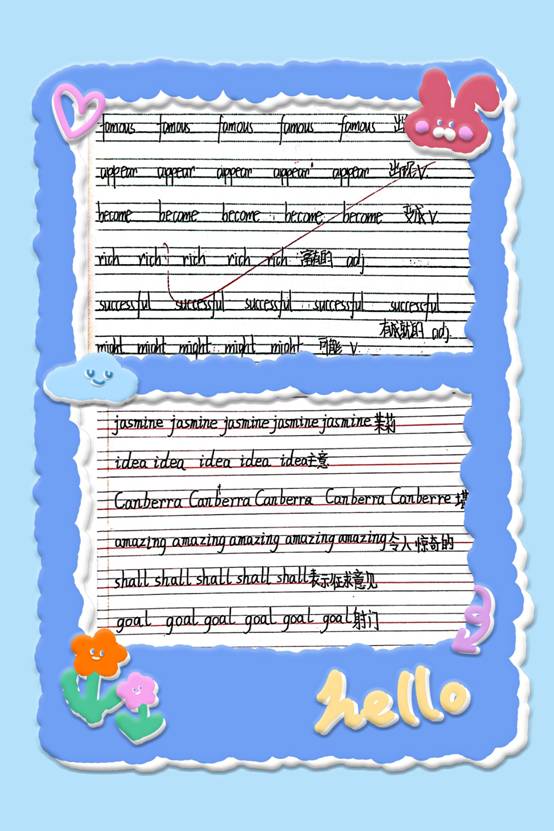 famous famous famous famous famous 出
appear appear appear appear appear 出现 v.
become become become become become 变成 v.
rich rich rich rich rich 富有的 adj
successful successful successful successful successful
有成就的 adj.
might might might might might 可能 v.
jasmine jasmine jasmine jasmine jasmine 茉莉
idea idea idea idea idea 主意
Canberra Canberra Canberra Canberra Canberre 堪
amazing amazing amazing amazing amazing 令人惊奇的
shall shall shall shall shall 表示征求意见
goal goal goal goal goal goal 射门
hello